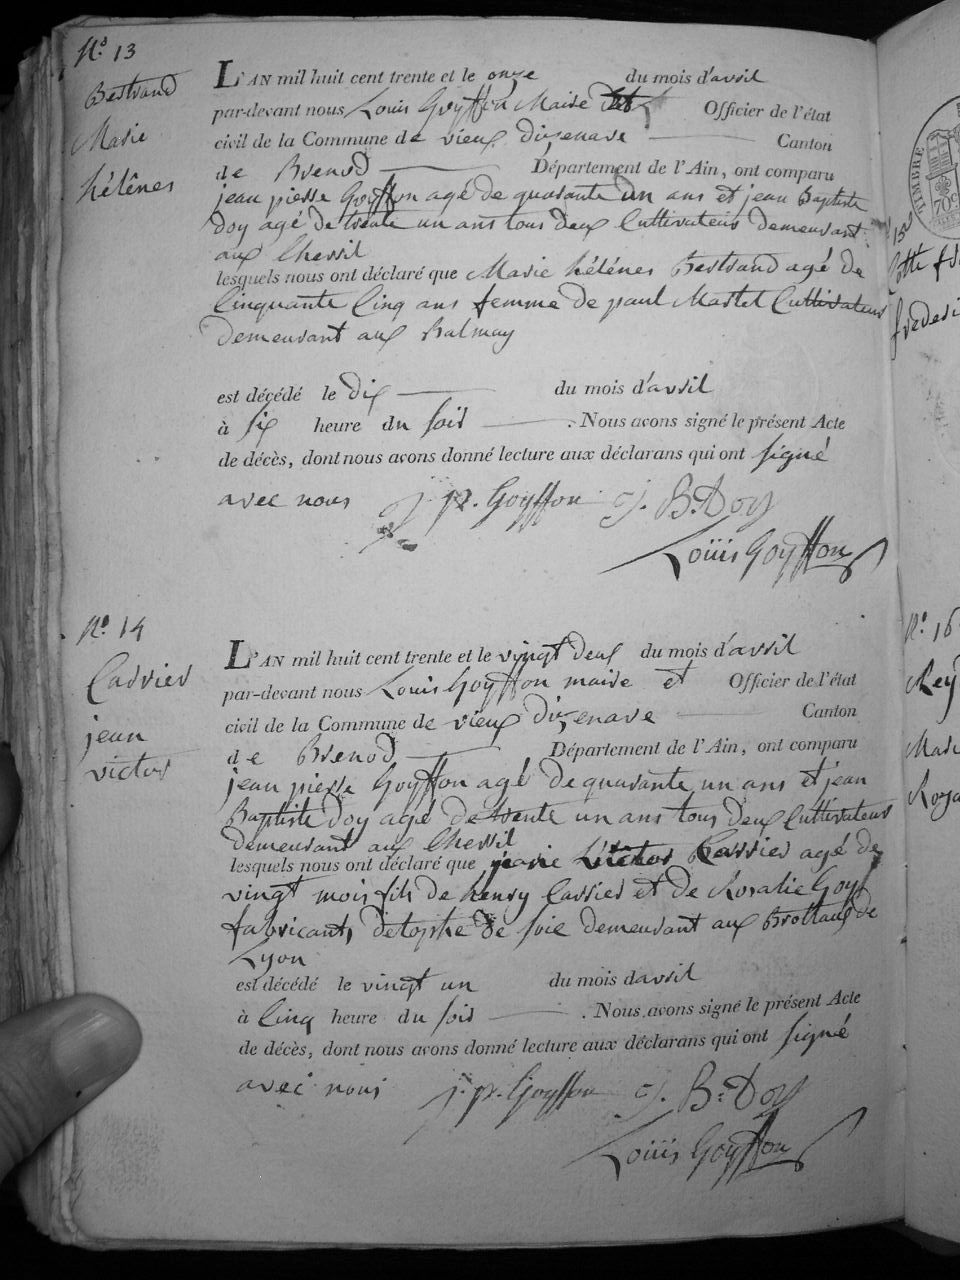 N.° 13
Bertrand
Marie
hélênes
L'AN mil huit cent trente et le onze du mois d'avril
par-devant nous Louis Goyffon Maire et Officier de l'état
civil de la Commune de vieux dizenave Canton
de Brenod Département de l'Ain, ont comparu
jean pierre Goyffon agé de quarante un ans et jean Baptiste
Doy agé de trente un ans tous deux Cultivateurs demeurant
aux Chevril
lesquels nous ont déclaré que Marie hélénes Bertrand agé de
Cinquante Cinq ans femme de paul Martel Cultivateur
demeurant aux Balmay
est décédé le dix du mois d'avril
à six heure du soir . Nous avons signé le présent Acte
de décès, dont nous avons donné lecture aux déclarans qui ont signé
avec nous j. p. Goyffon j. B. Doy
Louis Goyffon
N.° 14
Carrier
jean
victor
L'AN mil huit cent trente et le vingt deux du mois d'avril
par-devant nous Louis Goyffon maire et Officier de l'état
civil de la Commune de vieux dizenave Canton
de Brenod Département de l'Ain, ont comparu
jean pierre Goyffon agé de quarante un ans et jean
Baptiste Doy agé de trente un ans tous deux Cultivateurs
demeurant aux Chevril
lesquels nous ont déclaré que victor Carrier agé de
vingt mois fils de henry Carrier et de Rosalie Goy
fabricants détophe de soie demeurant aux Brottaux de
Lyon
est décédé le vingt un du mois davril
à Cinq heure du soir . Nous avons signé le présent Acte
de décès, dont nous avons donné lecture aux déclarans qui ont signé
avec nous j. p. Goyffon j. B. Doy
Louis Goyffon
TIMBRE
70c
N.° 16
Rey